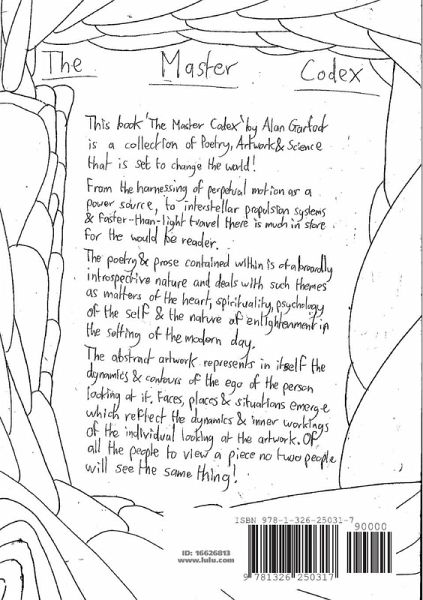 The Master Codex
This book 'The Master Codex' by Alan Garfoot
is a collection of Poetry, Artwork & Science
that is set to change the world!
From the harnessing of perpetual motion as a
power source, to interstellar propulsion systems
& faster-than-light travel there is much in store
for the would be reader.
The poetry & prose contained within is of a broadly
introspective nature and deals with such themes
as matters of the heart, spirituality, psychology
of the self & the nature of enlightenment in
the setting of the modern day.
The abstract artwork represents in itself the
dynamics & contours of the ego of the person
looking at it. Faces, places & situations emerge
which reflect the dynamics & inner workings
of the individual looking at the artwork. Of
all the people to view a piece no two people
will see the same thing!
ISBN 978-1-326-25031-7
90000
ID: 16626813
www.lulu.com
9 781326 250317